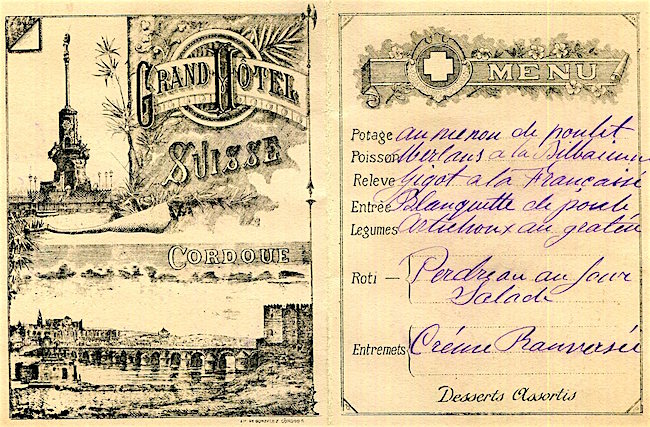 GRAND HÔTEL
SUISSE
CORDOUE
MENU
Potage au menou de poulit
Poisson Merlans a la Bilbainne
Releve Gigot a la Française
Entrée Blanquette de poule
Legumes Artichoux au gratin
Roti — Perdreau au four
Salade
Entremets Créme Ranversée
Desserts Assortis